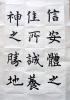 信安體之
佳所誠養
神之勝地